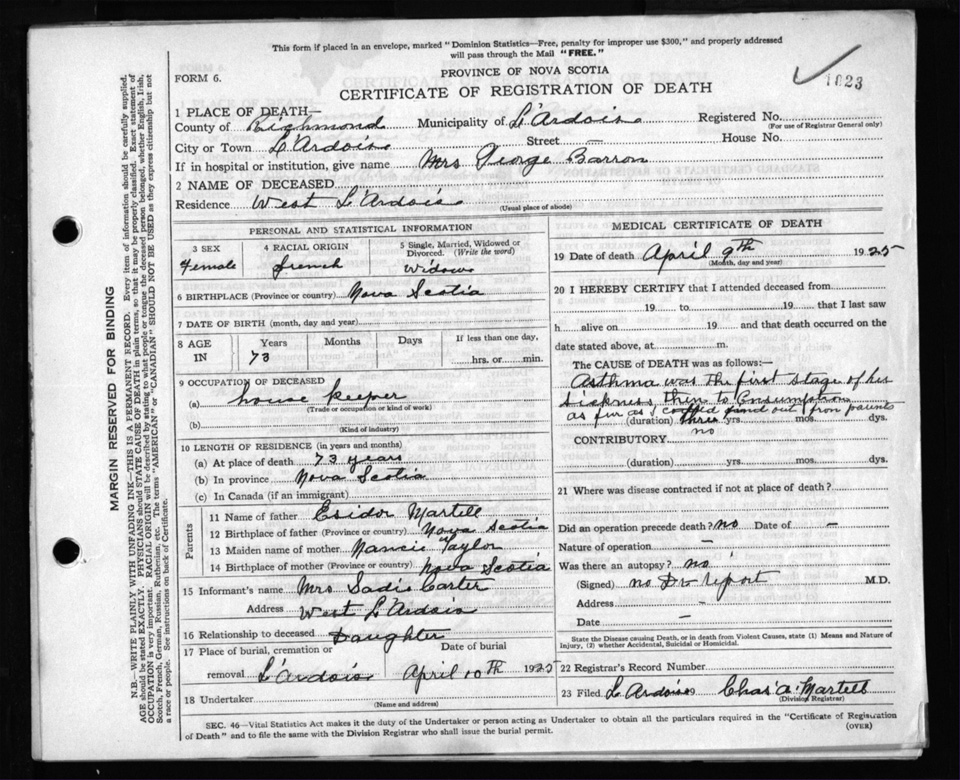 This form if placed in an envelope, marked "Dominion Statistics—Free, penalty for improper use $300," and properly addressed
will pass through the Mail "FREE."
PROVINCE OF NOVA SCOTIA
FORM 6.
CERTIFICATE OF REGISTRATION OF DEATH
1023
1 PLACE OF DEATH—
County of Richmond Municipality of L'Ardoise Registered No.
(For use of Registrar General only)
City or Town L'Ardoise Street — House No.
If in hospital or institution, give name Mrs George Barron
2 NAME OF DECEASED
Residence West L'Ardoise
(Usual place of abode)
PERSONAL AND STATISTICAL INFORMATION
3 SEX 4 RACIAL ORIGIN 5 Single, Married, Widowed or
Divorced. (Write the word)
Female french widow
6 BIRTHPLACE (Province or country) Nova Scotia
7 DATE OF BIRTH (month, day and year)
8 AGE IN Years Months Days If less than one day,
73 hrs. or min.
9 OCCUPATION OF DECEASED
(a) house keeper
(Trade or occupation or kind of work)
(b)
(Kind of industry)
10 LENGTH OF RESIDENCE (in years and months)
(a) At place of death 73 years
(b) In province Nova Scotia
(c) In Canada (if an immigrant)
Parents
11 Name of father Esidor Martell
12 Birthplace of father (Province or country) Nova Scotia
13 Maiden name of mother Nancie Taylor
14 Birthplace of mother (Province or country) Nova Scotia
15 Informant's name Mrs Sadis Carter
Address West L'Ardoise
16 Relationship to deceased Daughter
17 Place of burial, cremation or Date of burial
removal L'Ardoise April 10th 1925
18 Undertaker
(Name and address)
MEDICAL CERTIFICATE OF DEATH
19 Date of death April 9th 1925
(Month, day and year)
20 I HEREBY CERTIFY that I attended deceased from
19 to 19 that I last saw
h alive on 19 and that death occurred on
date stated above, at m.
The CAUSE OF DEATH was as follows:—
Asthma was the first stage of her
sickness then to Consumption
as fur as I find out from parents
(duration) three yrs. mos. dys.
no
CONTRIBUTORY
(duration) yrs. mos. dys.
21 Where was disease contracted if not at place of death?
Did an operation precede death? no Date of —
Nature of operation —
Was there an autopsy? no
(Signed) no Dr report M.D.
Address —
Date —
State the Disease causing Death, or in death from Violent Causes, state (1) Means and Nature of
Injury, (2) whether Accidental, Suicidal or Homicidal.
22 Registrar's Record Number
23 Filed L'Ardoise Chas. A. Martell
(Division Registrar)
SEC. 46—Vital Statistics Act makes it the duty of the Undertaker or person acting as Undertaker to obtain all the particulars required in the "Certificate of Registration
of Death" and to file the same with the Division Registrar who shall issue the burial permit.
(OVER)
MARGIN RESERVED FOR BINDING
N.B.—WRITE PLAINLY WITH UNFADING INK—THIS IS A PERMANENT RECORD. Every item of information should be carefully supplied.
AGE should be stated EXACTLY. PHYSICIANS should STATE CAUSE OF DEATH in plain terms, so that it may be properly classified. Exact statement of
OCCUPATION is very important. RACIAL ORIGIN will be described by stating to what people or tongue the deceased person belonged, whether English, Irish,
Scotch, French, German, Russian, Ruthenian, etc. The terms "AMERICAN" or "CANADIAN" SHOULD NOT BE USED as they express citizenship but not
a race or people. See instructions on back of Certificate.